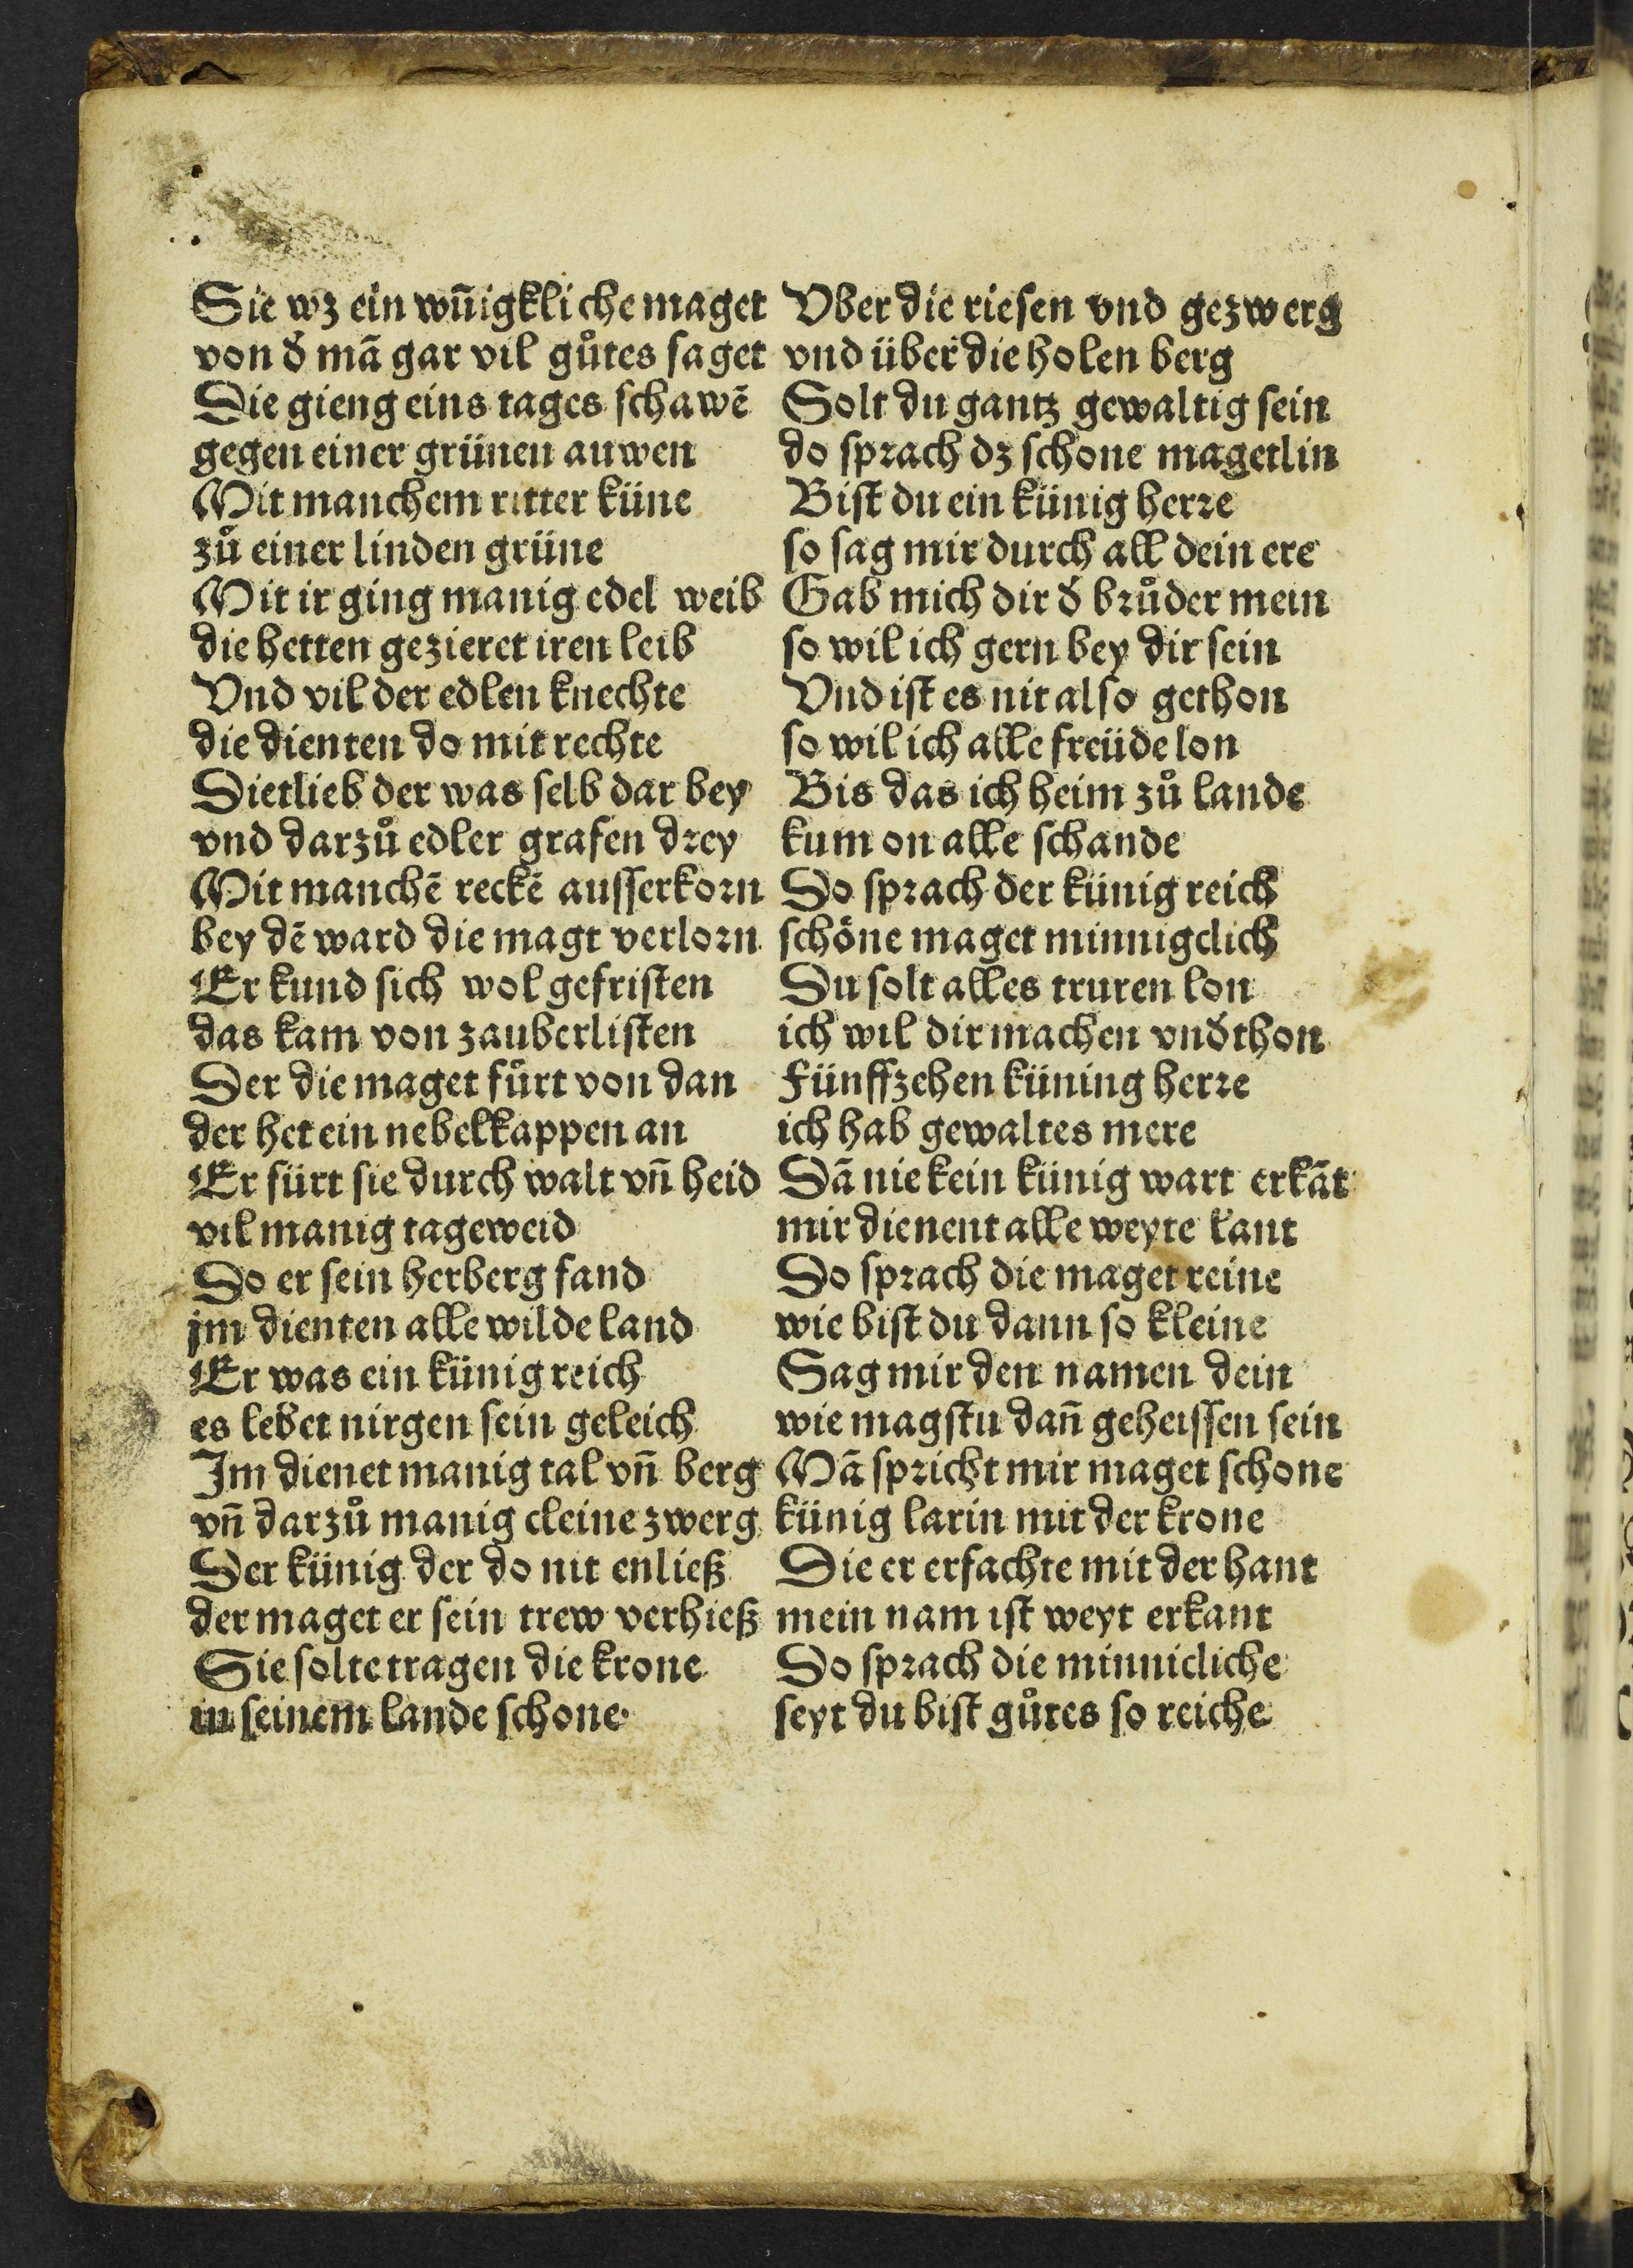 Sie wz ein wūnigkliche maget
von ď mā gar vil gůtes saget
Die gieng eins tages schawē
gegen einer grünen auwen
Mit manchem ritter küne
zů einer linden grüne
Mit ir ging manig edel weib
die hetten gezieret iren leib
Vnd vil der edlen knechte
die dienten do mit rechte
Dietlieb der was selb dar bey
vnd darzů edler grafen drey
Mit manchē reckē ausserkorn
bey dē ward die magt verlorn
Er kund sich wol gefristen
das kam von zauberlisten
Der die maget fůrt von dan
der het ein nebelkappen an
Er fürt sie durch walt vn̄ heid
vil manig tageweid
Do er sein herberg fand
jm dienten alle wilde land
Er was ein künig reich
es lebet nirgen sein geleich
Im dienet manig tal vn̄ berg
vn̄ darzů manig cleine zwerg
Der künig der do nit enließ
der maget er sein trew verhieß
Sie solte tragen die krone
in seinem lande schone·
Vber die riesen vnd gezwerg
vnd über die holen berg
Solt du gantz gewaltig sein
do sprach dz schone magetlin
Bist du ein künig herre
so sag mir durch all dein ere
Gab mich dir ď brůder mein
so wil ich gern bey dir sein
Vnd ist es nit also gethon
so wil ich alle freüde lon
Bis das ich heim zů lande
kum on alle schande
Do sprach der künig reich
schöne maget minnigclich
Du solt alles truren lon
ich wil dir machen vnďthon
Fünffzehen küning herre
ich hab gewaltes mere
Dā nie kein künig wart erkāt
mir dienent alle weyte lant
Do sprach die maget reine
wie bist du dann so kleine
Sag mir den namen dein
wie magstu dan̄ geheissen sein
Mā spricht mir maget schone
künig larin mit der krone
Die er erfachte mit der hant
mein nam ist weyt erkant
Do sprach die minnicliche
seyt du bist gůtes so reiche